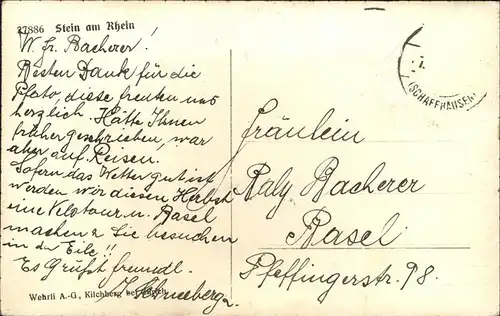 27886 Stein am Rhein
W. Frl. Bacherer!
Besten Dank für die
Photo, diese freuten uns
herzlich. Hätte Ihnen
früher geschrieben, war
aber auf Reisen.
Sofern das Wetter gut ist
werden wir diesen Herbst
eine Velotour n. Basel
machen u. Sie besuchen
in der Eile!!
Es Grüsst freundl.
Wehrli A.-G., Kilchberg bei Zürich
(SCHAFFHAUSEN)
Fräulein
Bacherer
Basel
Pfeffingerstr. 98.